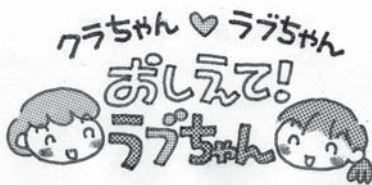 クラちゃん♡ラブちゃん
おしえて!
ラブちゃん